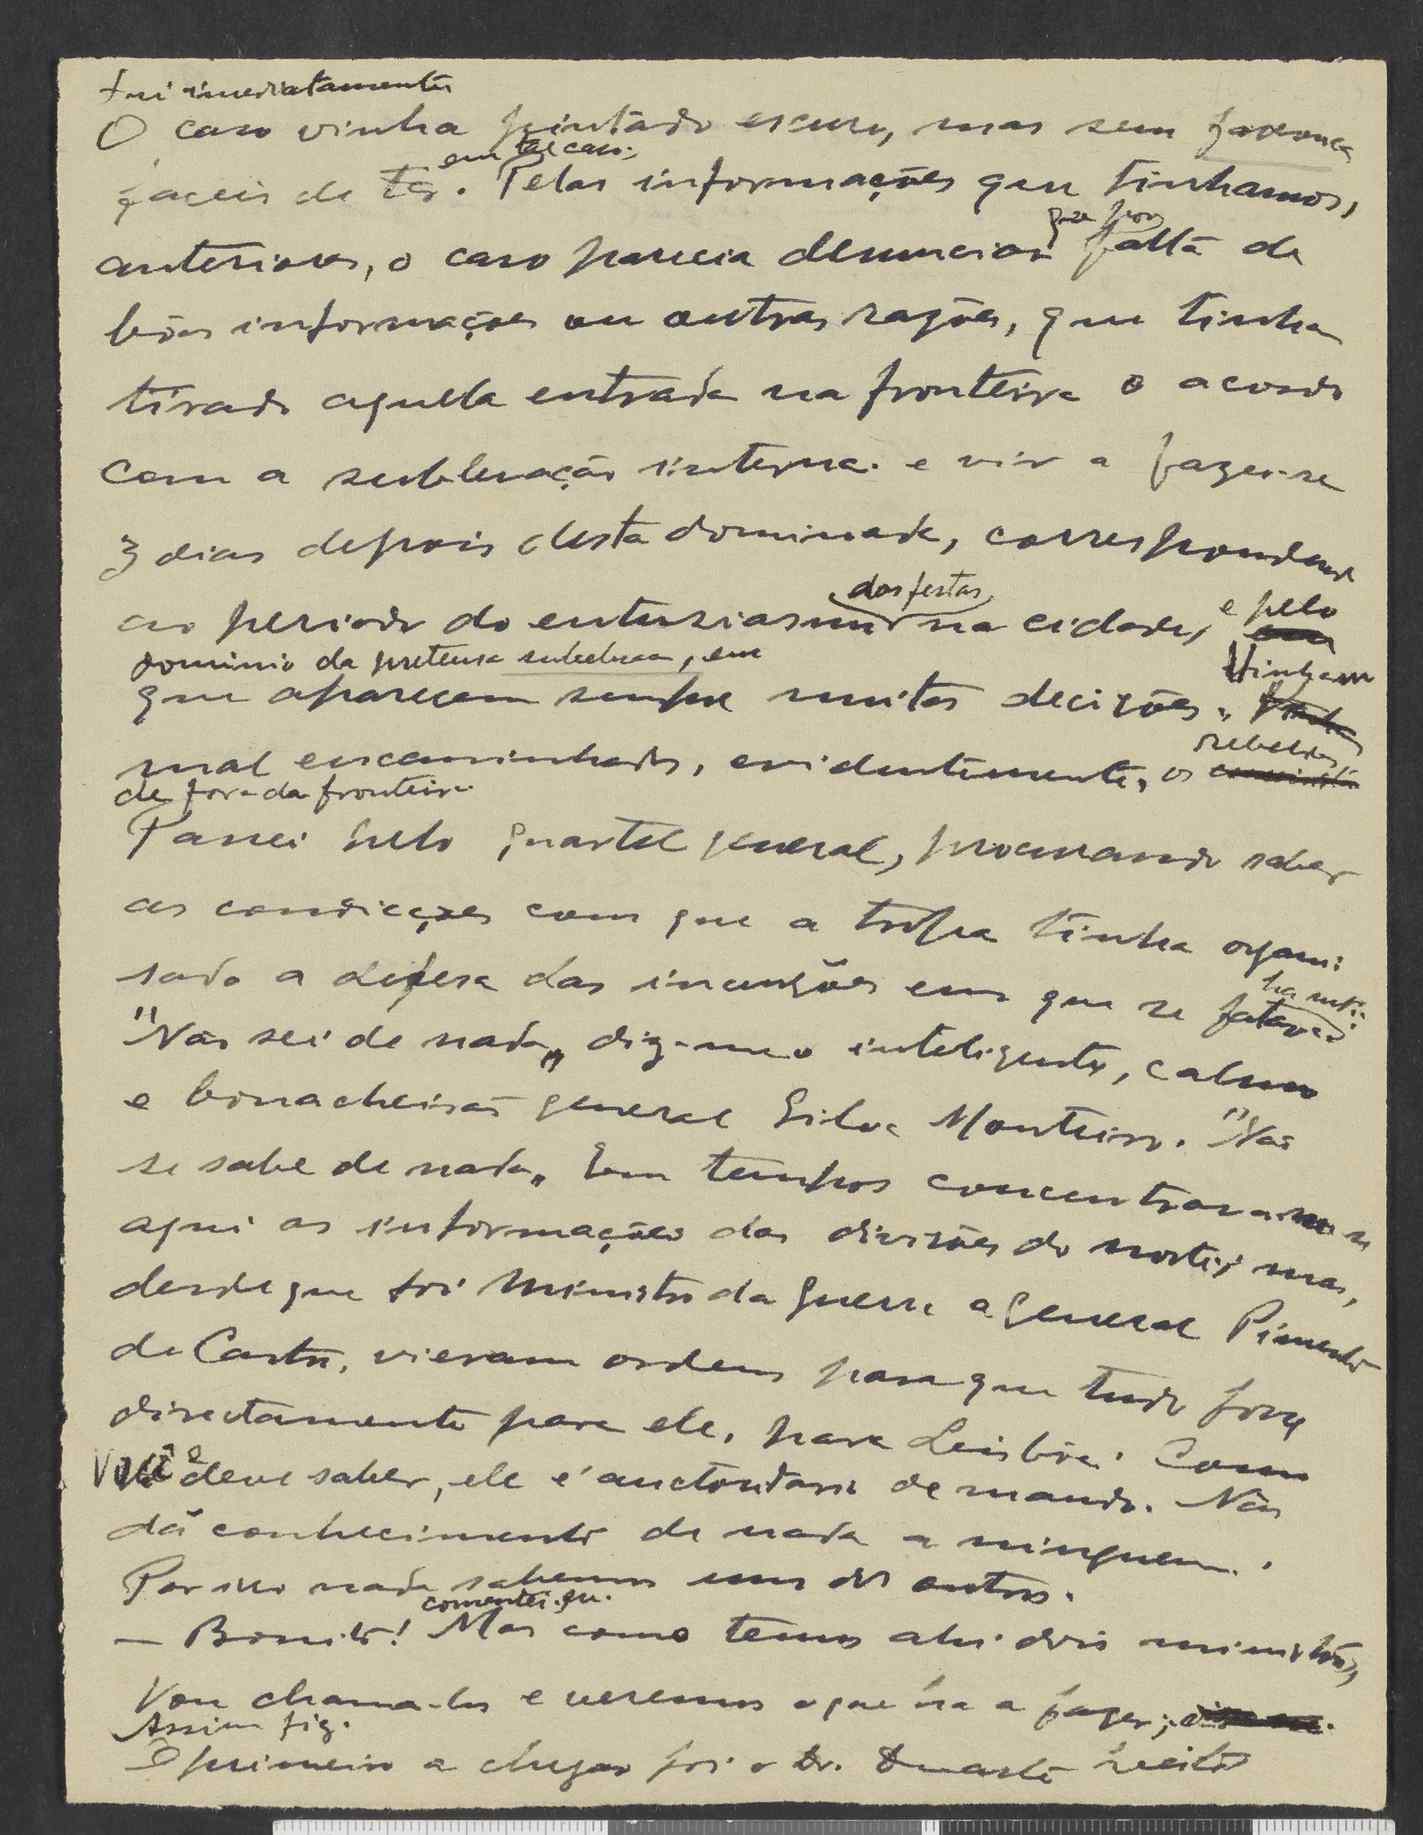 Fui imediatamente
O caso vinha pintado escuro, mas sem
faceis de ter. em tal caso. Pelas informações que tinhamos,
anteriores, o caso parecia denunciar que por falta de
bôas informações ou outras razões, que tinha
tirado aquela entrada na fronteira o acordo
com a sublevação interna. e vir a fazer-se
3 dias depois desta dominada, correspondendo
ao periodo do entusiasmo das festas na cidade, e pelo
dominio da pretensa em
que aparecem sempre muitas decizões. Vinham
mal encaminhados, evidentemente, os rebeldes
de fora da fronteira.
Passei pelo quartel general, procurando saber
as condicções com que a tropa tinha organi-
sado a defesa das incursões em que se
"Não sei de nada" diz-me o inteligente, calmo
e bonacheirão general Silva Monteiro. "Não
se sabe de nada" Em tempos concentravam-se
aqui as informações das divisões do norte; mas,
desde que foi Ministro da Guerra o general Pimenta
de Castro, vieram ordens para que tudo fosse
directamente para ele, para Leisbôa. Como
Você deve saber, ele é auctoritario de mando. Não
dá conhecimento de nada a ninguem.
Por isso nada sabemos uns dos outros.
— Bonito! comentei-eu. Mas como temos ahi dois ministros,
Vou chama-los e veremos o que ha a fazer;
Assim fiz.
O primeiro a chegar foi o Dr. Duarte Leite